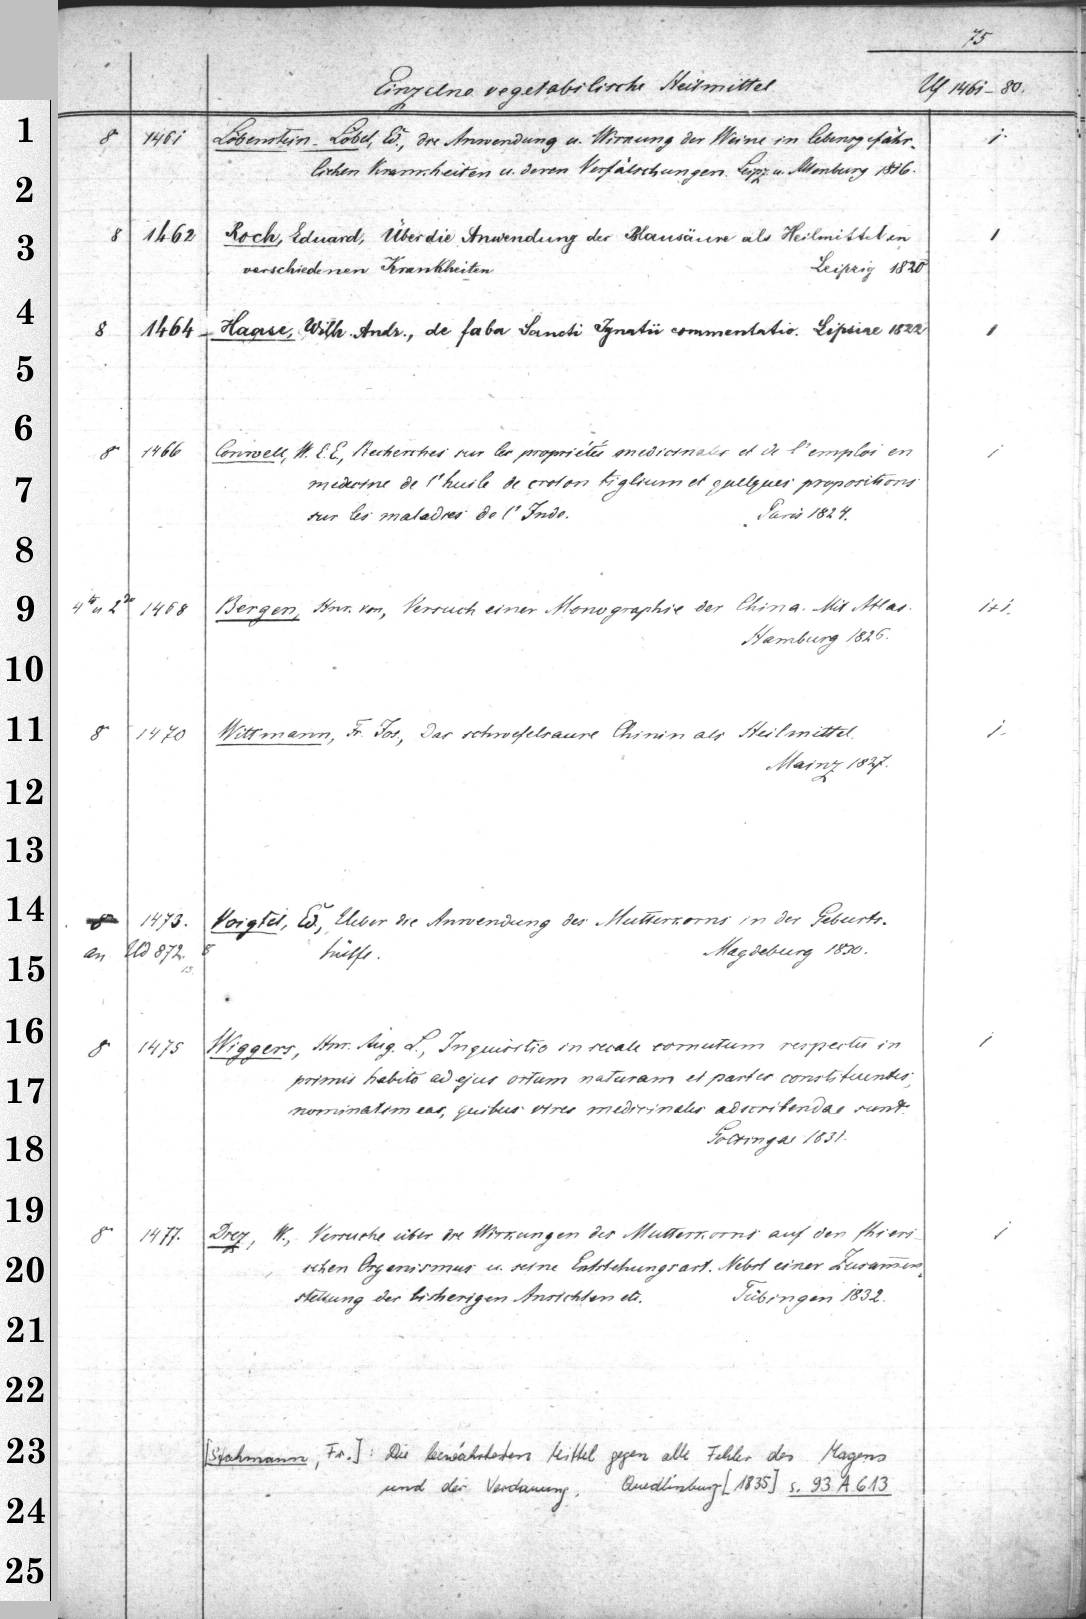 75
Einzelne vegetabilische Heilmittel Uf 1461-80.
1
8 1461 Löbenstein-Löbel, Ed., die Anwendung u. Wirkung der Weine in lebensgefähr- 1.
lichen Krankheiten u. deren Verfälschungen. Leipz. u. Altenburg 1816.
2
3
8 1462 Roch, Eduard, Über die Anwendung der Blausäure als Heilmittel in 1
verschiedenen Krankheiten Leipzig 1820
4
8 1464 Haase, Wilh. Andr., de faba Sancti Ignatii commentatio. Lipsiae 1822 1
5
6
8 1466 Conwell, W. E. E., Recherches sur les propriétés medicinales et de l'emploi en 1
7
medecine de l'huile de croton tiglium et quelques propositions
sur les maladies de l'Inde. Paris 1824.
8
9
4to u 2do 1468 Bergen, Hnr. von, Versuch einer Monographie der China. Mit Atlas. 1+1.
Hamburg 1826.
10
11
8 1470 Wittmann, Fr. Jos., Das schwefelsaure Chinin als Heilmittel. 1.
Mainz 1827.
12
13
14
8 1473. Voigtel, Ed., Ueber die Anwendung des Mutterkorns in der Geburts-
an Ud 872. 8 hülfe. Magdeburg 1830.
13.
15
16
8 1475 Wiggers, Hnr. Aug. L., Inquisitio in secale cornutum respectu in 1
primis habito ad ejus ortum naturam et partes constituentes,
17
nominatim eas, quibus vires medicinales adscribendae sunt.
18
Gottingae 1831.
19
8 1477. Diez, W., Versuche über die Wirkungen des Mutterkorns auf den thieri- 1
20
schen Organismus u. seine Entstehungsart. Nebst einer Zusam̄en-
stellung der bisherigen Ansichten etc. Tübingen 1832.
21
22
23
[Stahmann, Fr.]: Die bewährtesten Mittel gegen alle Fehler des Magens
und der Verdauung. Quedlinburg [1835] s. 93 A 613
24
25